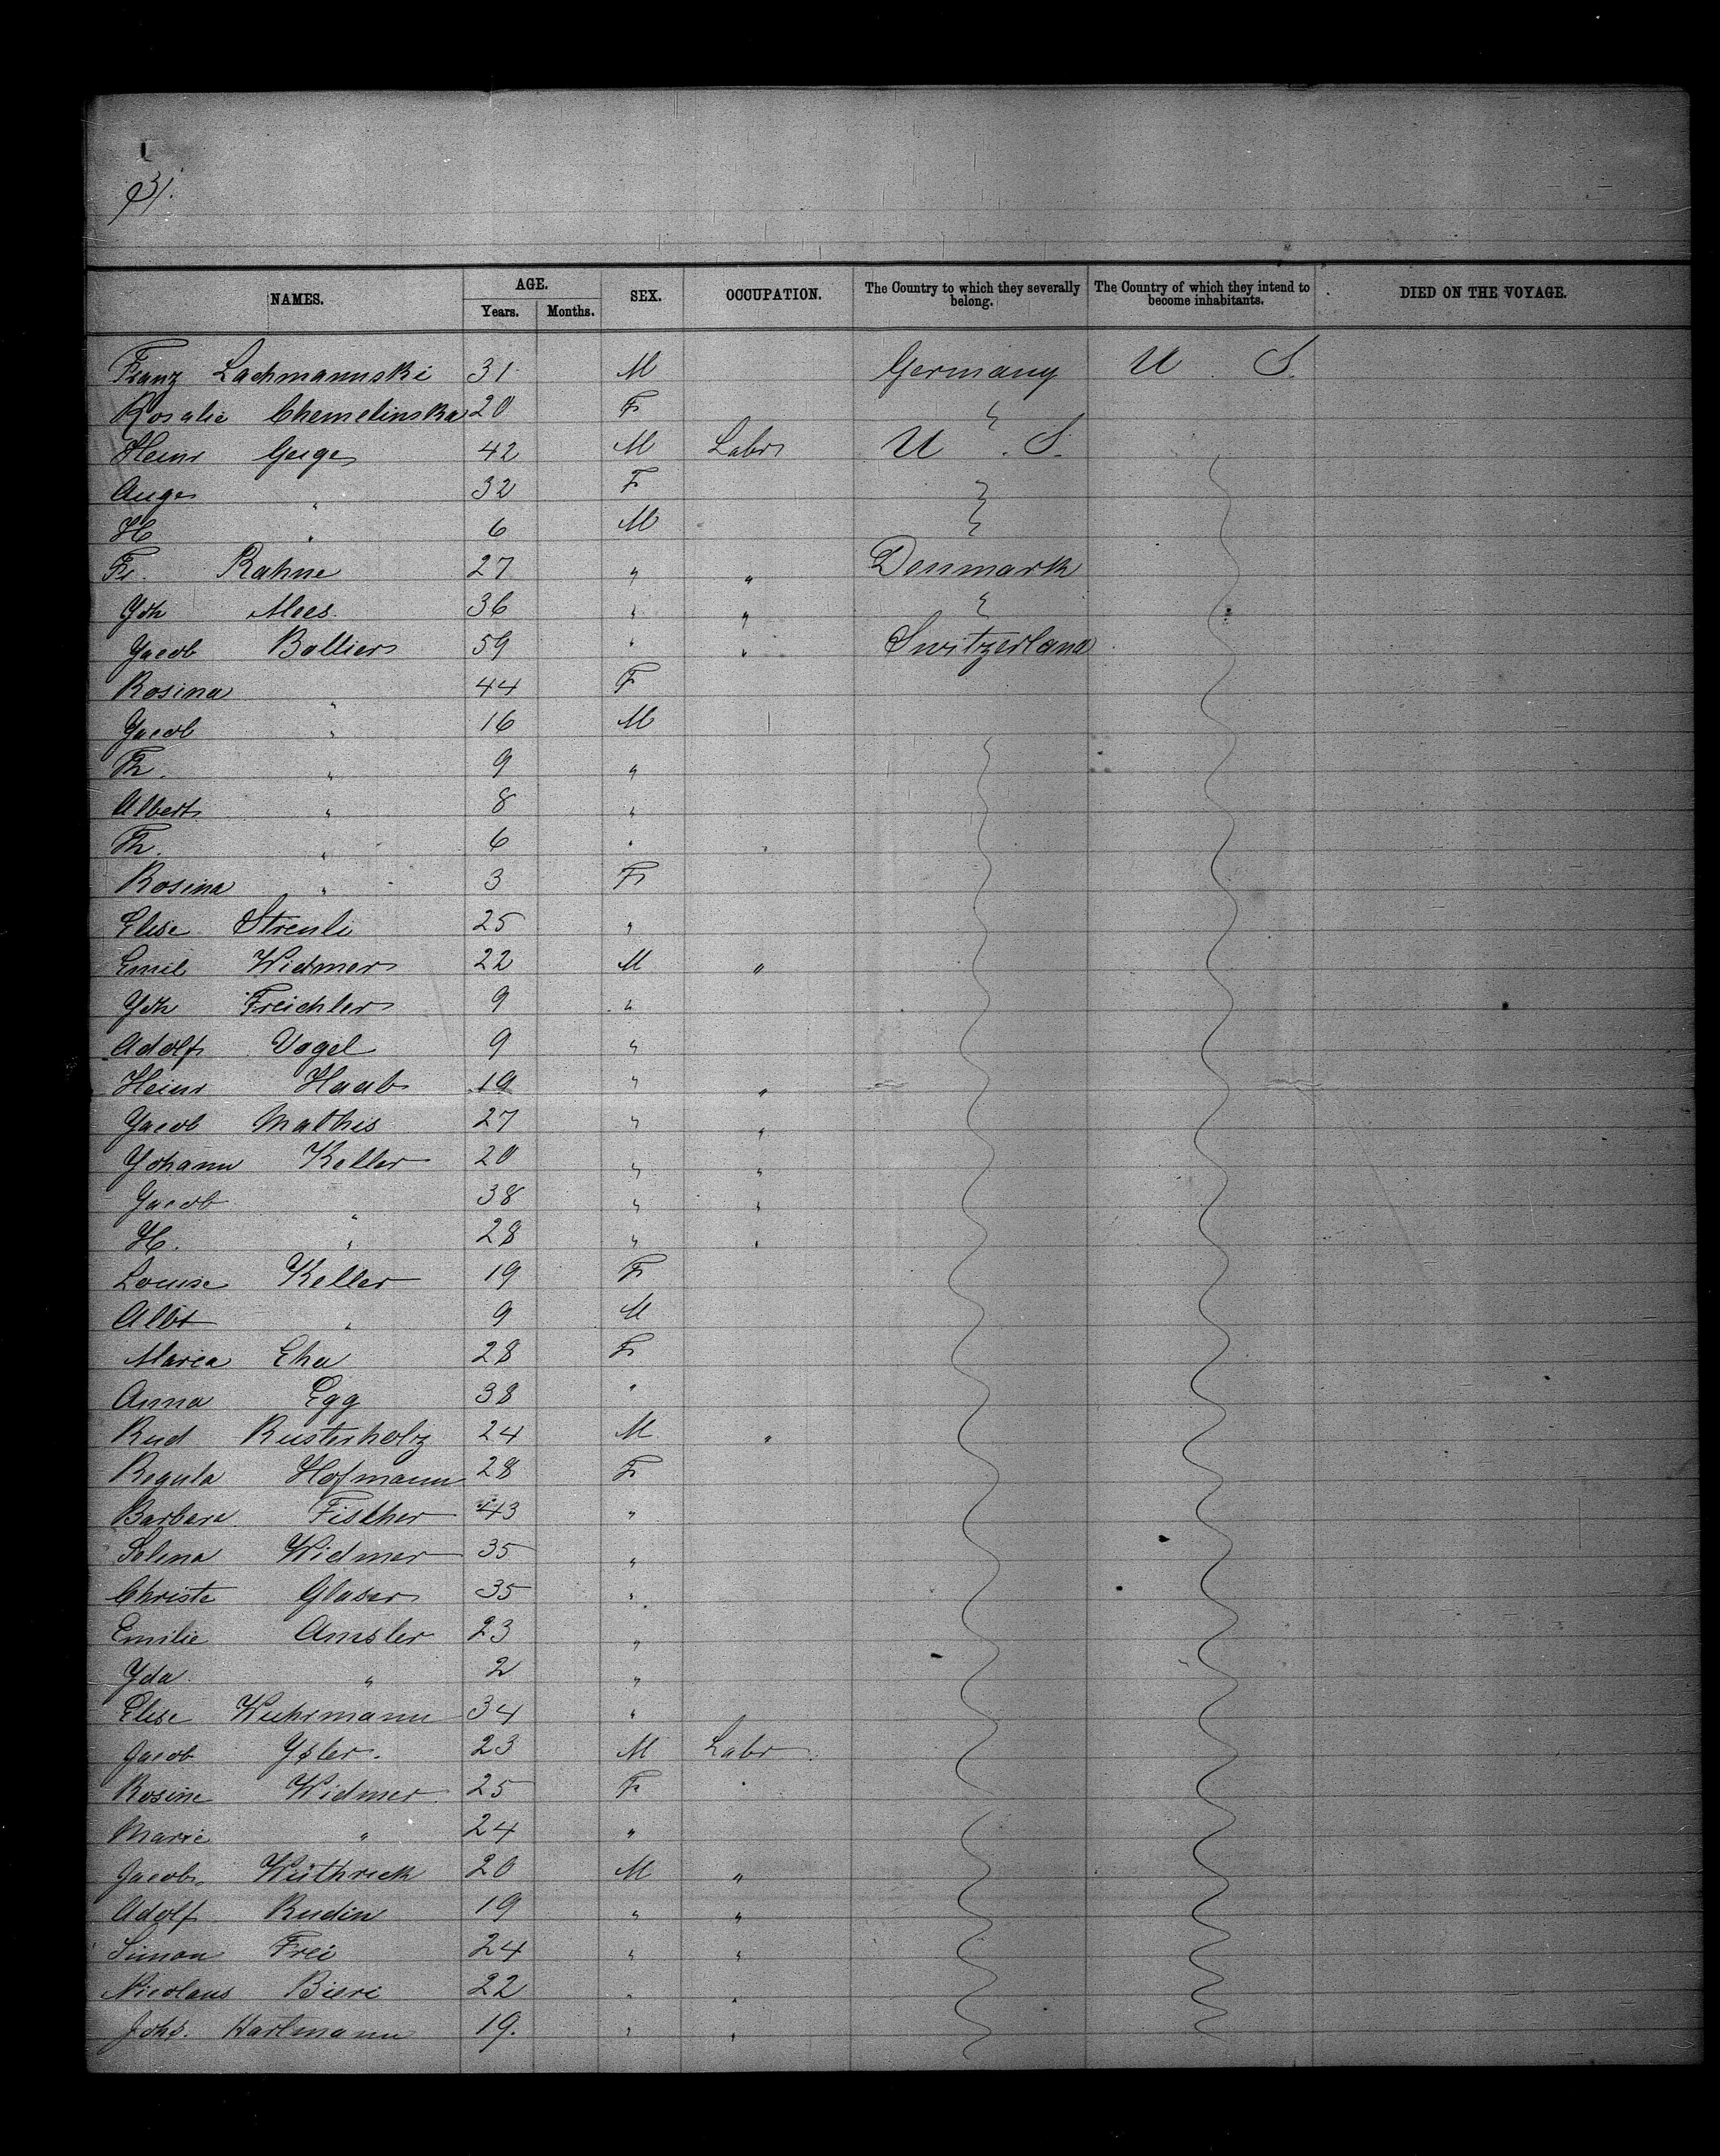 31.
NAMES. AGE. Years. Months. SEX. OCCUPATION. The Country to which they severally belong. The Country of which they intend to become inhabitants. DIED ON THE VOYAGE.
Franz Lachmannski 31 M Germany U S.
Rosalie Chemelinska 20 F
Heinr Geiger 42 M Labr U. S.
Auge " 32 F
H " 6 M
Fr. Rahne 27 " " Denmark
Joh Mees 36 " "
Jacob Bollier 59 " " Switzerland
Rosina " 44 F
Jacob " 16 M
Th. " 9 "
Albert " 8 "
Th. " 6 "
Rosina " 3 F
Elise Streuli 25 "
Emil Widmer 22 M "
Joh Freichler 9 "
Adolf Vogel 9 "
Heinr Haab 19 " "
Jacob Mathis 27 " "
Johann Keller 20 " "
Jacob " 38 " "
H. " 28 " "
Louise Keller 19 F
Albt " 9 M
Maria Eha 28 F
Anna Egg 38 "
Rud Rusterholz 24 M "
Regula Hofmann 28 F
Barbara Fischer 43 "
Selina Widmer 35 "
Christe Glaser 35 "
Emilie Amsler 23 "
Ida " 2 "
Elise Wuhrmann 34 "
Jacob Isler. 23 M Labr
Rosine Widmer 25 F
Marie " 24 "
Jacob Wüthrich 20 M "
Adolf Rudin 19 " "
Simon Frei 24 " "
Nicolaus Bieri 22 " "
Johs. Hartmann 19. " "